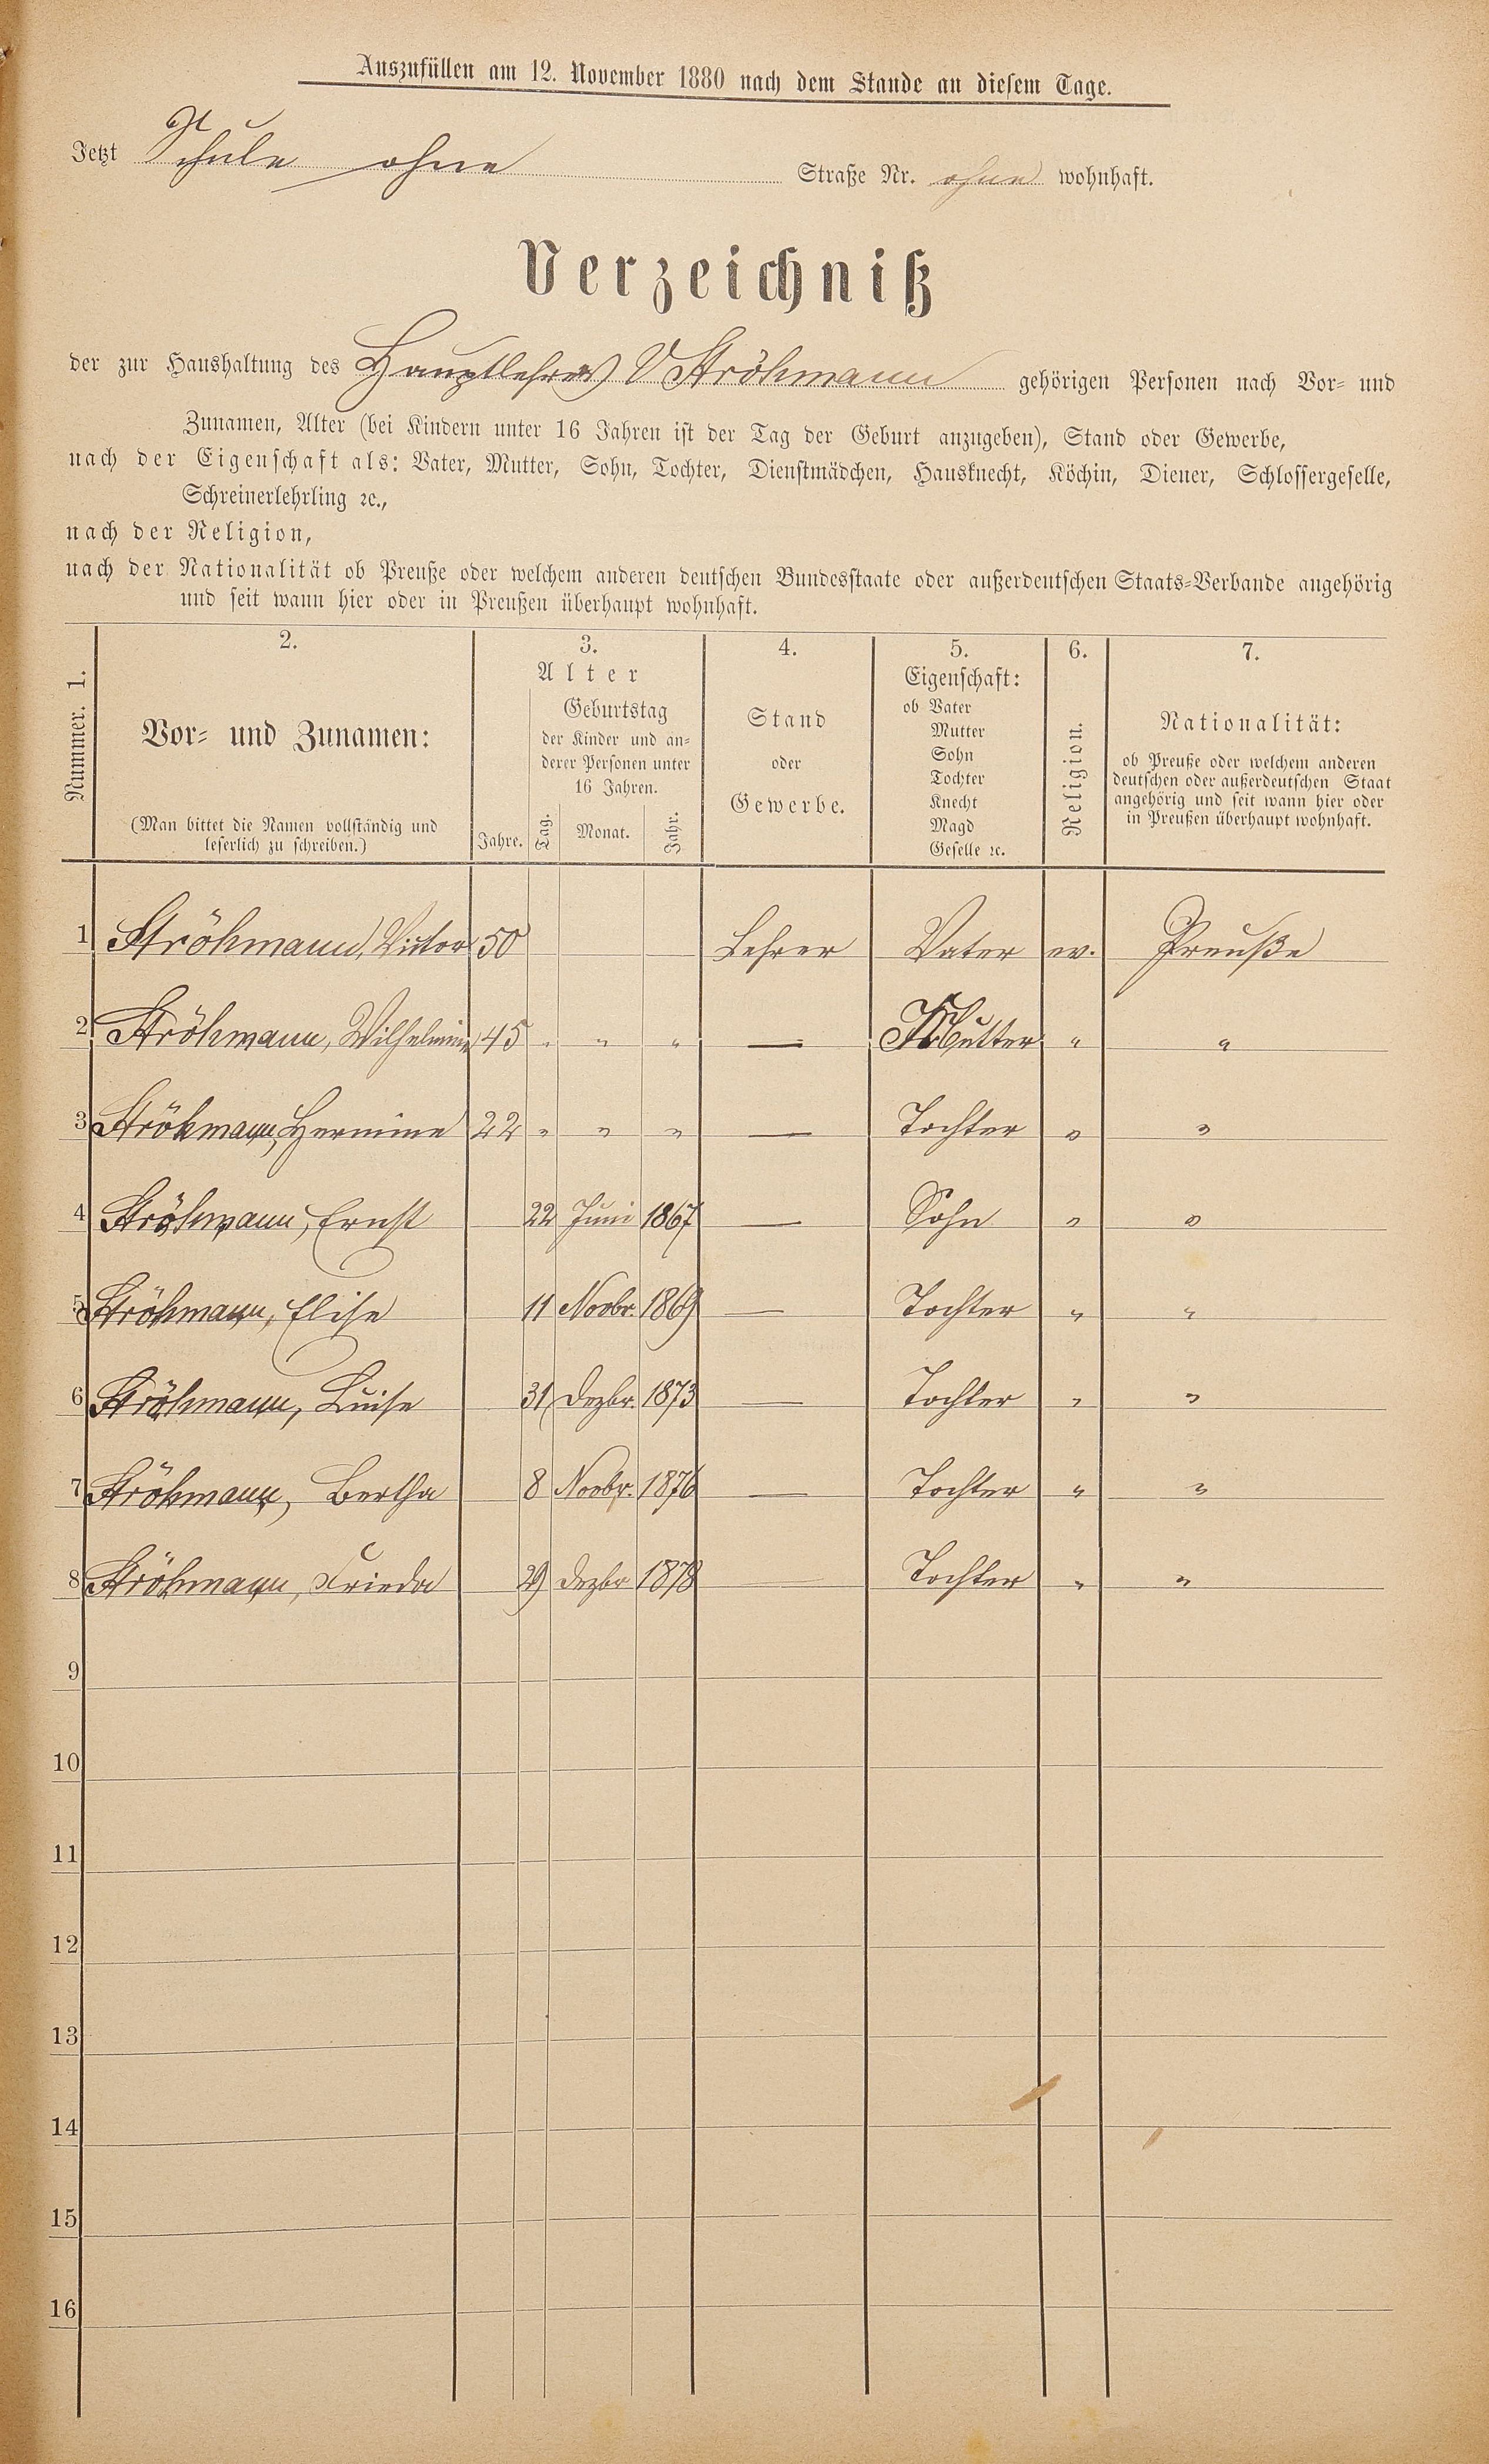 Auszufüllen am 12. November 1880 nach dem Stande an diesem Tage.
Jetzt Schule ohne Straße Nr. ohne wohnhaft.
Verzeichniß
der zur Haushaltung des Hauptlehrers V Ströhmann gehörigen Personen nach Vor- und
Zunamen, Alter (bei Kindern unter 16 Jahren ist der Tag der Geburt anzugeben), Stand oder Gewerbe,
nach der Eigenschaft als: Vater, Mutter, Sohn, Tochter, Dienstmädchen, Hausknecht, Köchin, Diener, Schlossergeselle,
Schreinerlehrling ꝛc.,
nach der Religion,
nach der Nationalität ob Preuße oder welchem anderen deutschen Bundesstaate oder außerdeutschen Staats-Verbande angehörig
und seit wann hier oder in Preußen überhaupt wohnhaft.
Nummer. 1.
2.
Vor- und Zunamen:
(Man bittet die Namen vollständig und
leserlich zu schreiben.)
3.
Alter
Jahre.
Geburtstag
der Kinder und an-
derer Personen unter
16 Jahren.
Tag. Monat. Jahr.
4.
Stand
oder
Gewerbe.
5.
Eigenschaft:
ob Vater
Mutter
Sohn
Tochter
Knecht
Magd
Geselle ꝛc.
6.
Religion.
7.
Nationalität:
ob Preuße oder welchem anderen
deutschen oder außerdeutschen Staat
angehörig und seit wann hier oder
in Preußen überhaupt wohnhaft.
1 Ströhmann, Victor 50 Lehrer Vater ev. Preuße
2 Ströhmann, Wilhelmine 45 " " " — Mutter " "
3 Ströhmann, Hermine 22 " " " — Tochter " "
4 Ströhmann, Ernst 22 Juni 1867 — Sohn " "
5 Ströhmann, Elise 11 Novbr. 1869 — Tochter " "
6 Ströhmann, Luise 31 Dezbr. 1873 — Tochter " "
7 Ströhmann, Bertha 8 Novbr. 1876 — Tochter " "
8 Ströhmann, Frieda 29 Dezbr 1878 — Tochter " "
9
10
11
12
13
14
15
16